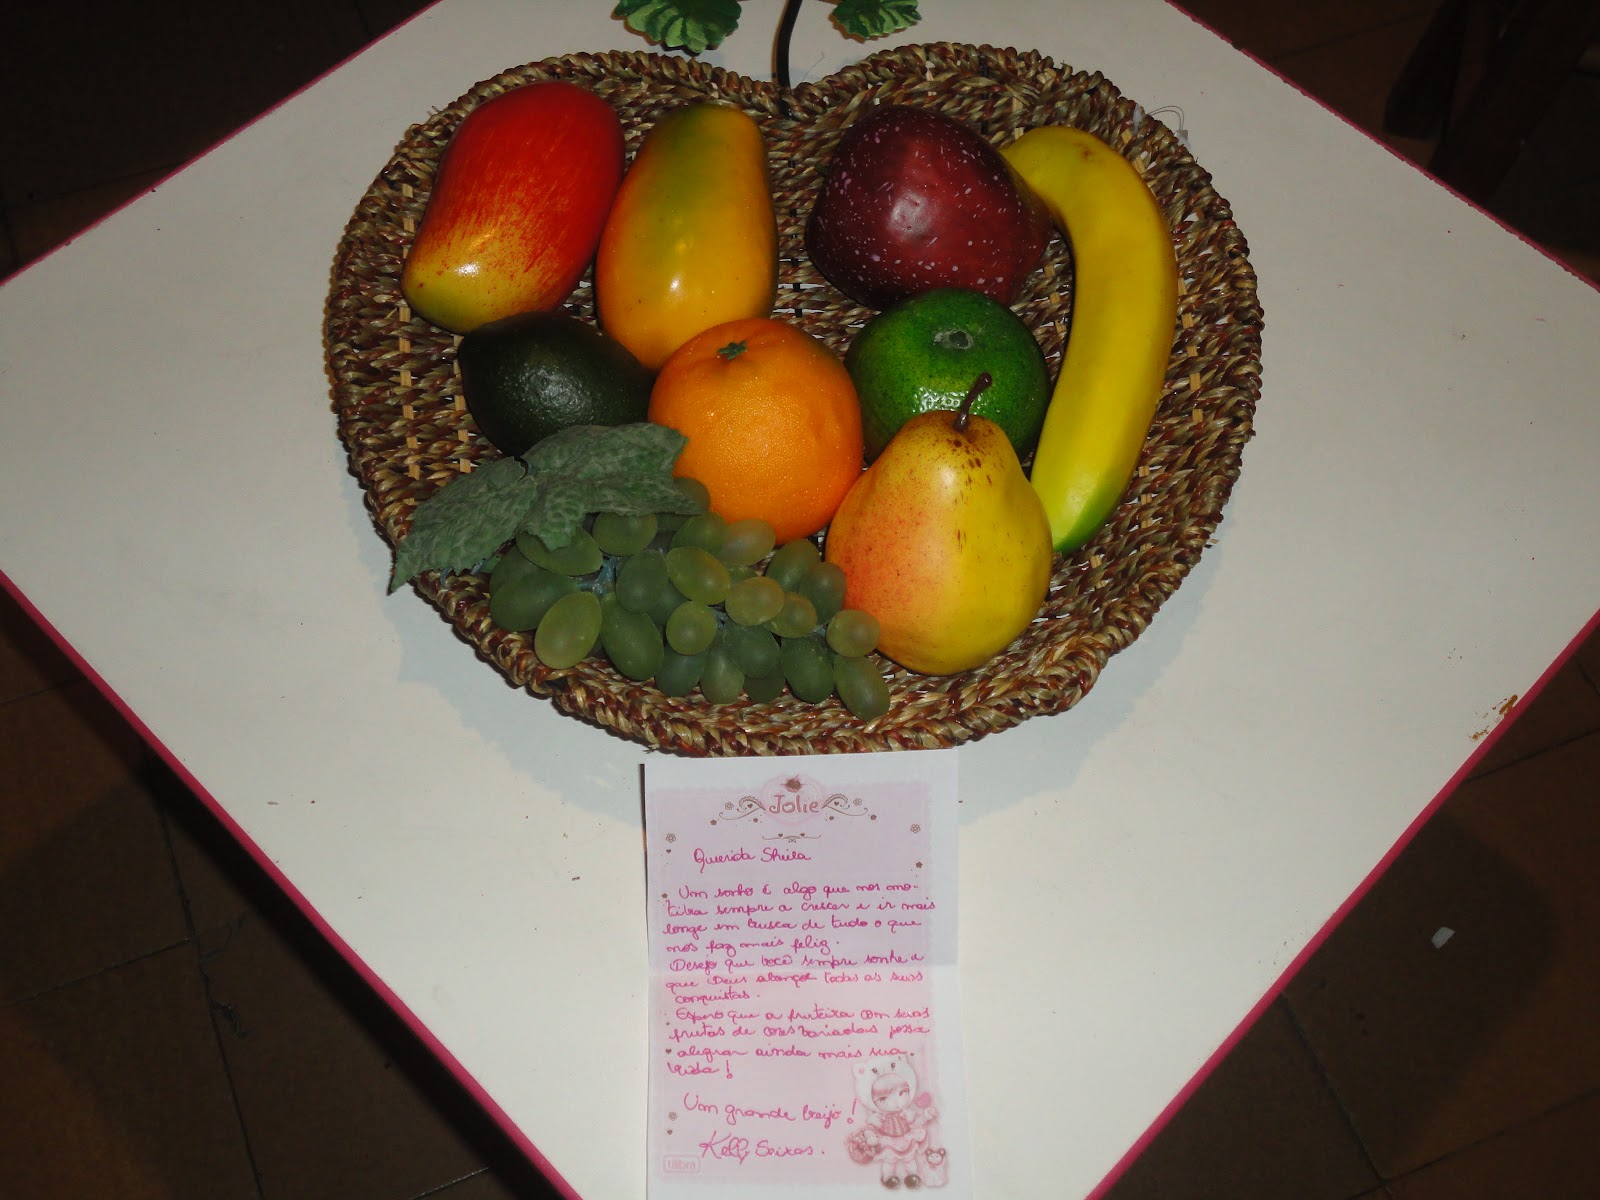 Jolie
Querida Sheila
Um sonho é algo que nos mo-
tiva sempre a crescer e ir mais
longe em busca de tudo o que
nos faz mais feliz.
Desejo que você sempre sonhe e
que Deus abençoe todas as suas
conquistas.
Espero que a fruteira com suas
frutas de cores variadas possa
alegrar ainda mais sua
vida!
Um grande beijo!
Kelly Seixas.
tilibra